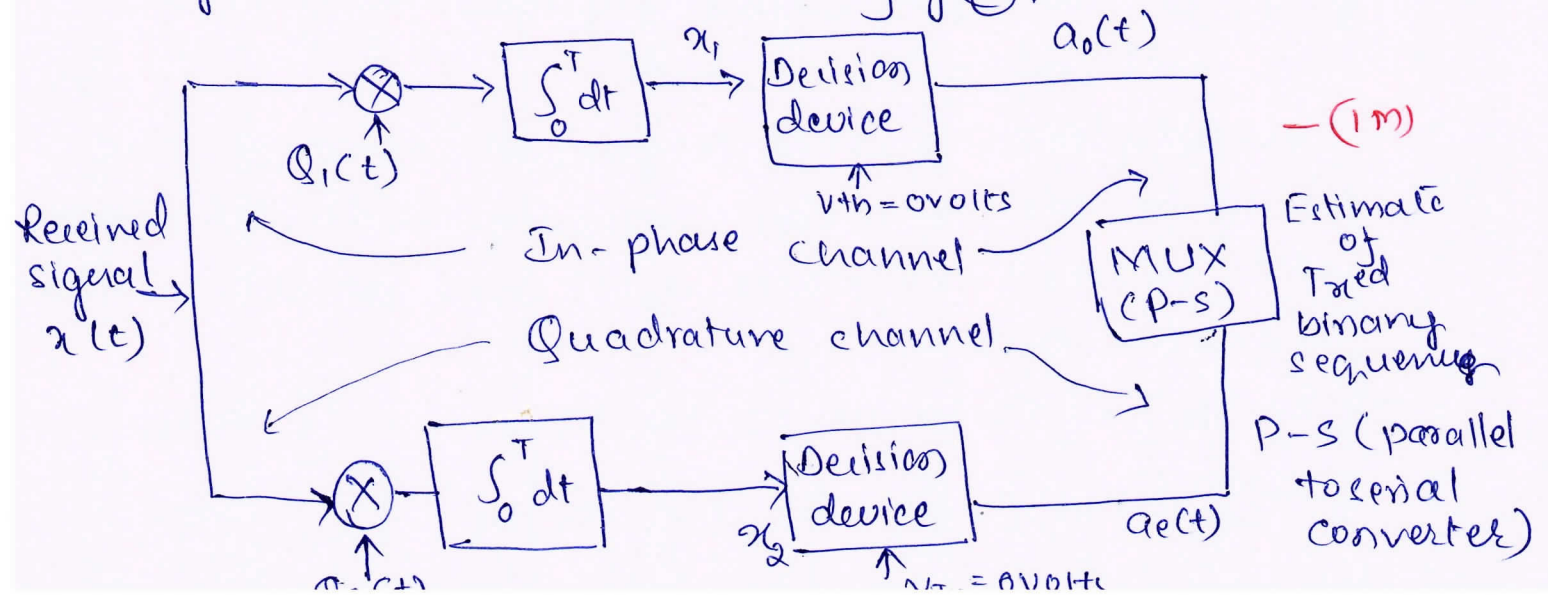 a₀(t)
x₁
∫₀ᵀ dt
Decision
device
Q₁(t)
Vth = 0volts
- (1M)
Received
signal
x(t)
In-phase channel
MUX
(P-S)
Estimate
of
Txed
binary
sequence
Quadrature channel
P-S (parallel
to serial
converter)
∫₀ᵀ dt
x₂
Decision
device
ae(t)